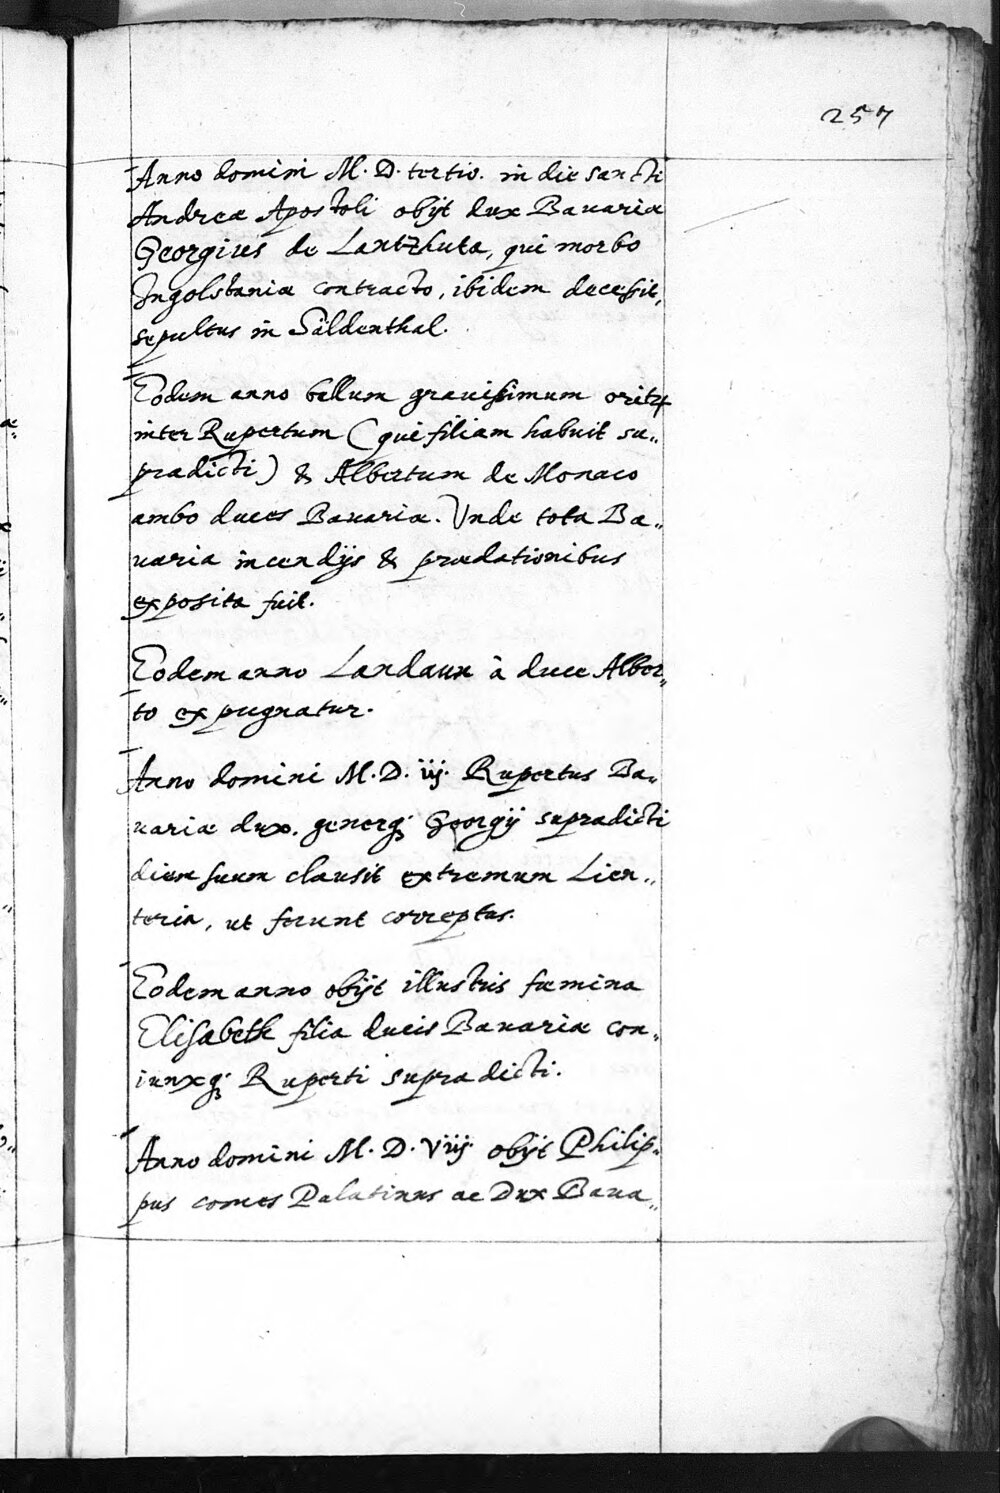 257
Anno domini M. D. tertio. in die sancti
Andreæ Apostoli obijt dux Bauariæ
Georgius de Lantzhuta, qui morbo
Ingolstaniæ contracto, ibidem decessit,
sepultus in Säldenthal.
Eodem anno bellum grauissimum oritꝛ
inter Rupertum (qui filiam habuit su„
pradicti) & Albertum de Monaco
ambo duces Bauariæ. Vnde tota Ba„
uaria incendijs & prædationibus
exposita fuit.
Eodem anno Landaun à duce Alber„
to expugnatur.
Anno domini M. D. iij. Rupertus Ba„
uariæ dux. generq; Georgij supradicti
diem suum clausit extremum Lien„
teria, ut ferunt correptus.
Eodem anno obijt illustris fæmina
Elisabeth filia ducis Bauariæ con„
iunxq; Ruperti supradicti.
Anno domini M. D. Viij. obijt Philip„
pus comes Palatinus ac Dux Baua„